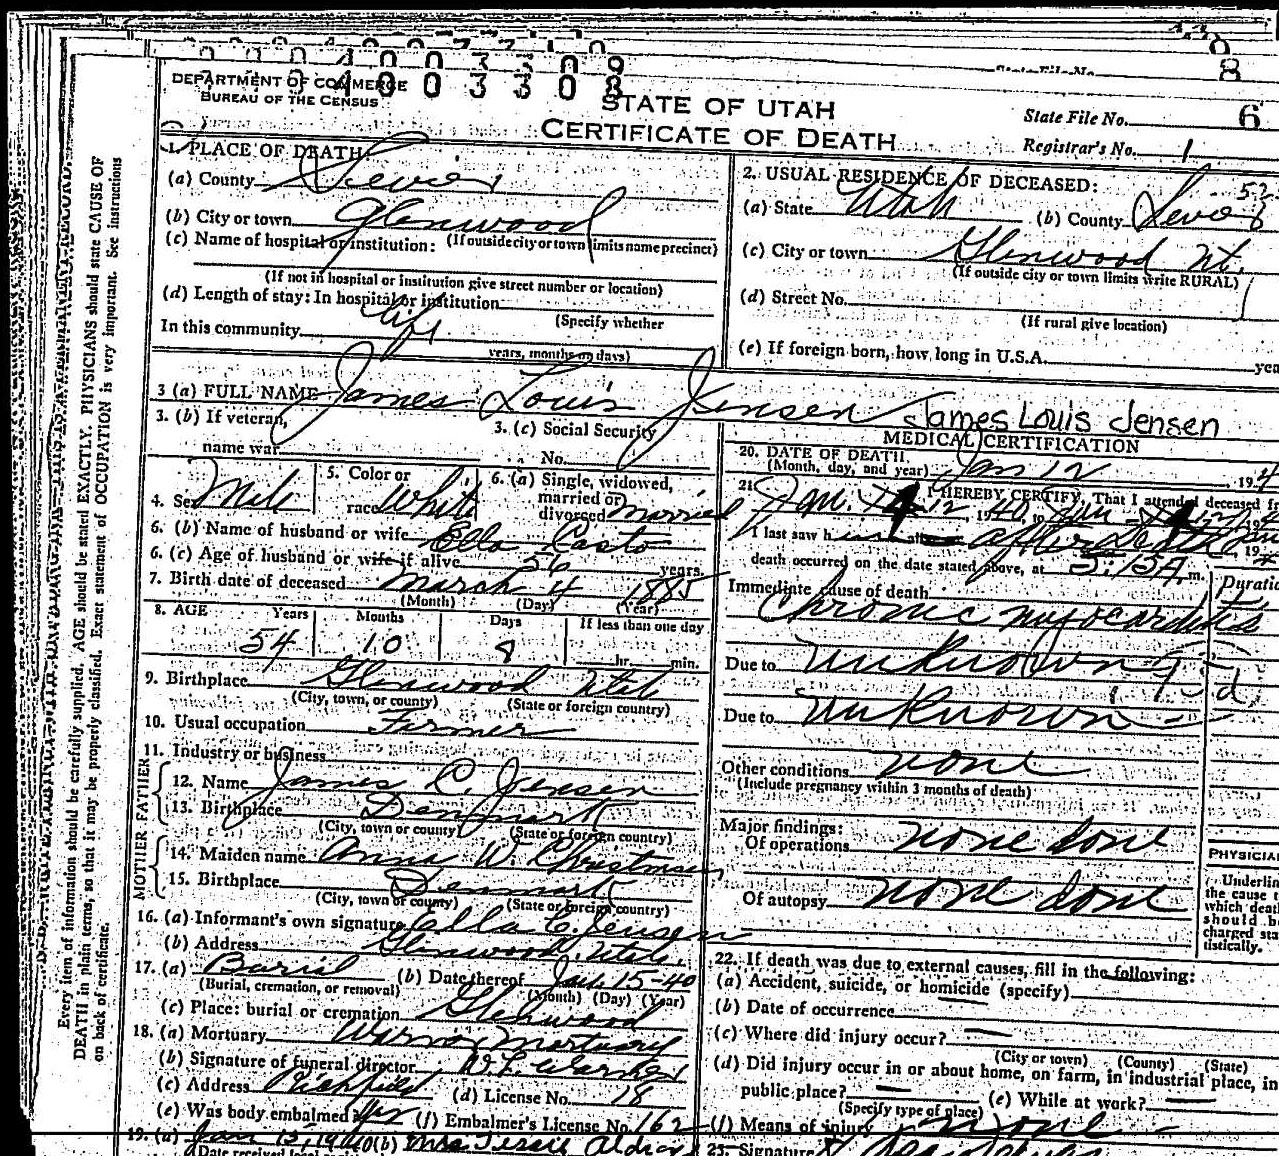 4003308
DEPARTMENT OF COMMERCE
BUREAU OF THE CENSUS
STATE OF UTAH
CERTIFICATE OF DEATH
State File No. 6
Registrar's No. 1
1. PLACE OF DEATH
(a) County Sevier
(b) City or town Glenwood
(c) Name of hospital or institution: (If outside city or town limits name precinct)
(If not in hospital or institution give street number or location)
(d) Length of stay: In hospital or institution
(Specify whether
In this community life
years, months or days)
2. USUAL RESIDENCE OF DECEASED:
(a) State Utah (b) County Sevier
(c) City or town Glenwood Ut.
(If outside city or town limits write RURAL)
(d) Street No.
(If rural give location)
(e) If foreign born, how long in U.S.A.
3 (a) FULL NAME James Louis Jensen James Louis Jensen
3. (b) If veteran,
name war
3. (c) Social Security
No.
4. Sex Male
5. Color or
race White
6. (a) Single, widowed,
married or
divorced married
6. (b) Name of husband or wife Ella Casto
6. (c) Age of husband or wife if alive 56 years.
7. Birth date of deceased March 4 1885
(Month) (Day) (Year)
8. AGE Years Months Days If less than one day
54 10 8 hr. min.
9. Birthplace Glenwood Utah
(City, town, or county) (State or foreign country)
10. Usual occupation Farmer
11. Industry or business
FATHER
12. Name James C. Jensen
13. Birthplace Denmark
(City, town or county) (State or foreign country)
MOTHER
14. Maiden name Anna W. Christensen
15. Birthplace Denmark
(City, town or county) (State or foreign country)
16. (a) Informant's own signature Ella C. Jensen
(b) Address Glenwood, Utah.
17. (a) Burial (b) Date thereof Jan. 15-40
(Burial, cremation, or removal) (Month) (Day) (Year)
(c) Place: burial or cremation Glenwood
18. (a) Mortuary Mortuary
(b) Signature of funeral director
(c) Address Richfield (d) License No. 78
(e) Was body embalmed yes (f) Embalmer's License No. 162
19. (a) Jan 15, 1940 (b) Mrs.
MEDICAL CERTIFICATION
20. DATE OF DEATH
(Month, day, and year) Jan 12 , 194
21. I HEREBY CERTIFY, That I attended deceased
I last saw h after Death
death occurred on the date stated above, at 5:15 A. m.
Immediate cause of death
Chronic myocarditis
Due to unknown
Due to unknown
Other conditions none
(Include pregnancy within 3 months of death)
Major findings:
Of operations none done
Of autopsy none done
22. If death was due to external causes, fill in the following:
(a) Accident, suicide, or homicide (specify)
(b) Date of occurrence
(c) Where did injury occur?
(City or town) (County) (State)
(d) Did injury occur in or about home, on farm, in industrial place, in
public place? (e) While at work?
(Specify type of place)
(f) Means of injury none
23. Signature
Every item of information should be carefully supplied. AGE should be stated EXACTLY. PHYSICIANS should state CAUSE OF
DEATH in plain terms, so that it may be properly classified. Exact statement of OCCUPATION is very important. See instructions
on back of certificate.